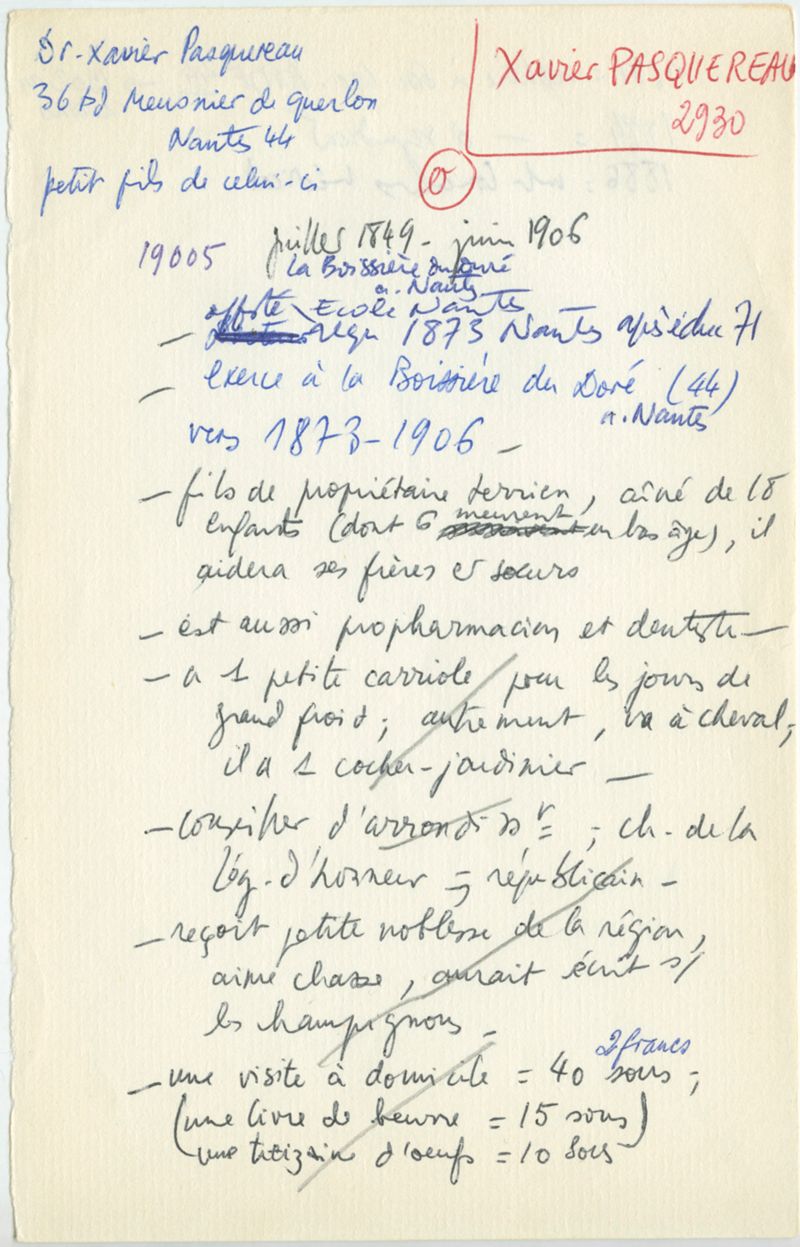 Dr. Xavier Pasquereau
36 bd Meusnier de querlon
Nantes 44
petit fils de celui-ci
Xavier PASQUEREAU
2930
19005
juillet 1849 - juin 1906
la Boissière du Doré
n. Nantes
Ecole Nantes
1873 Nantes 71
- exerce à la Boissière du Doré (44)
n. Nantes
vers 1873-1906 -
- fils de propriétaire terrien, aîné de 18
meurent
enfants (dont 6 en bas âge), il
aidera ses frères et sœurs
- est aussi propharmacien et dentiste -
- a 1 petite carriole pour les jours de
grand froid; autrement, va à cheval;
il a 1 cocher-jardinier -
- conseiller d'arrondiss r = ; ch. de la
Lég. d'honneur = ; républicain -
- reçoit petite noblesse de la région,
aime chasse, aurait écrit s/
les champignons -
2 francs
- une visite à domicile = 40 sous ;
(une livre de beurre = 15 sous)
(une treizaine d'oeufs = 10 sous